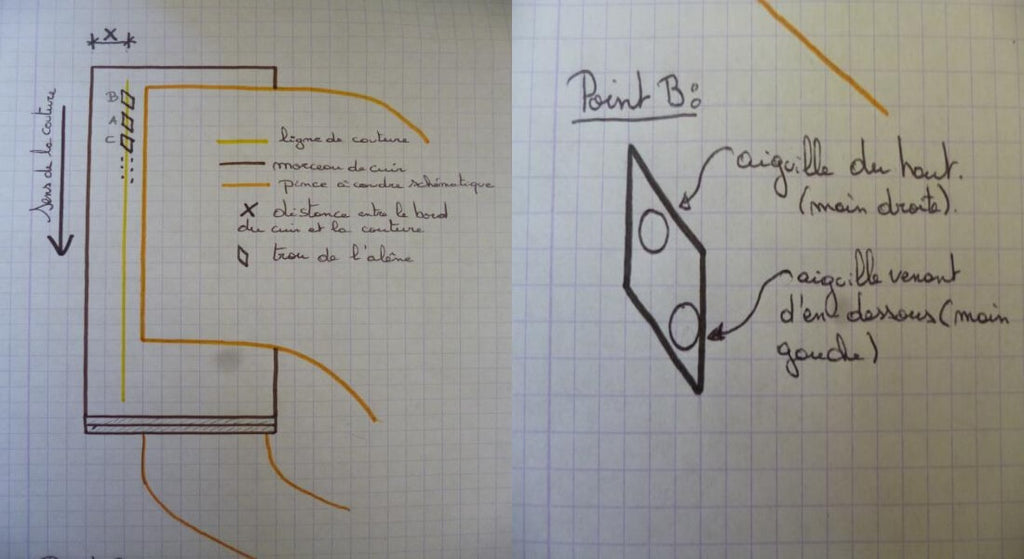 X
B
A
C
Sens de la couture
ligne de couture
morceau de cuir
pince à coudre schématique
X distance entre le bord
du cuir et la couture
trou de l'alène
Point B:
aiguille du haut.
(main droite).
aiguille venant
d'en dessous (main
gauche)